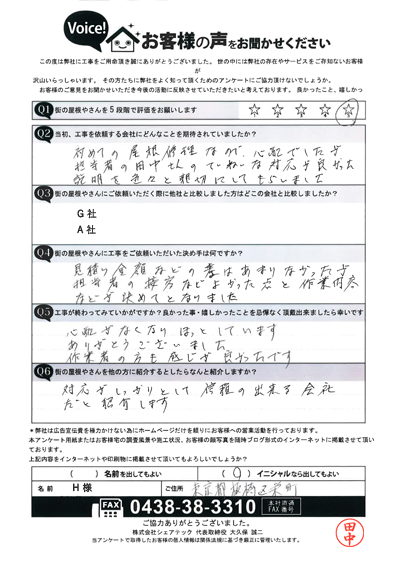 Voice!
お客様の声をお聞かせください
この度は弊社に工事をご用命頂き誠にありがとうございました。世の中には弊社の存在やサービスをご存知ないお客様
が
沢山いらっしゃいます。その方たちに弊社をよく知って頂くためのアンケートにご協力頂けないでしょうか。
お客様のご意見をお聞かせいただき今後の活動に反映させていただきたいと考えております。良かったこと、嬉しかっ
Q1 街の屋根やさんを5段階で評価をお願いします ☆ ☆ ☆ ☆ ☆
Q2 当初、工事を依頼する会社にどんなことを期待されていましたか?
初めての屋根修理なので、心配でしたが
担当者の田中さんのていねいな対応が良かった
説明を色々と親切にしてもらいました
Q3 街の屋根やさんにご依頼いただく際に他社と比較しました方はどこの会社と比較しましたか?
G社
A社
Q4 街の屋根やさんに工事をご依頼いただいた決め手は何ですか?
見積り金額などの差はあまりなかったが
担当者の接方などよかった点と作業内容
などが決めてとなりました
Q5 工事が終わってみていかがですか?良かった事・嬉しかったことを忌憚なく頂戴出来ましたら幸いです
心配がなくなりほっとしています
ありがとうございました
作業者の方も感じが良かったです
Q6 街の屋根やさんを他の方に紹介するとしたらなんと紹介しますか?
対応がしっかりとして信頼の出来る会社
だと紹介します
*弊社は広告宣伝費を極力かけない為にホームページだけを頼りにお客様への営業活動を行っております。
本アンケート用紙またはお客様宅の調査風景や施工状況、お客様の顔写真を随時ブログ形式のインターネットに掲載させて頂い
ております。
上記内容をインターネットや印刷物に掲載させて頂いてもよろしいでしょうか?
( )名前を出してもよい (○)イニシャルなら出してもよい
名前 H様 ご住所 東京都板橋区栄町
FAX 0438-38-3310 本社直通 FAX番号
ご協力ありがとうございました。
株式会社シェアテック 代表取締役 大久保 誠二
当アンケートで取得したお客様の個人情報は関係法規に基づき厳正に管理いたします。
田中